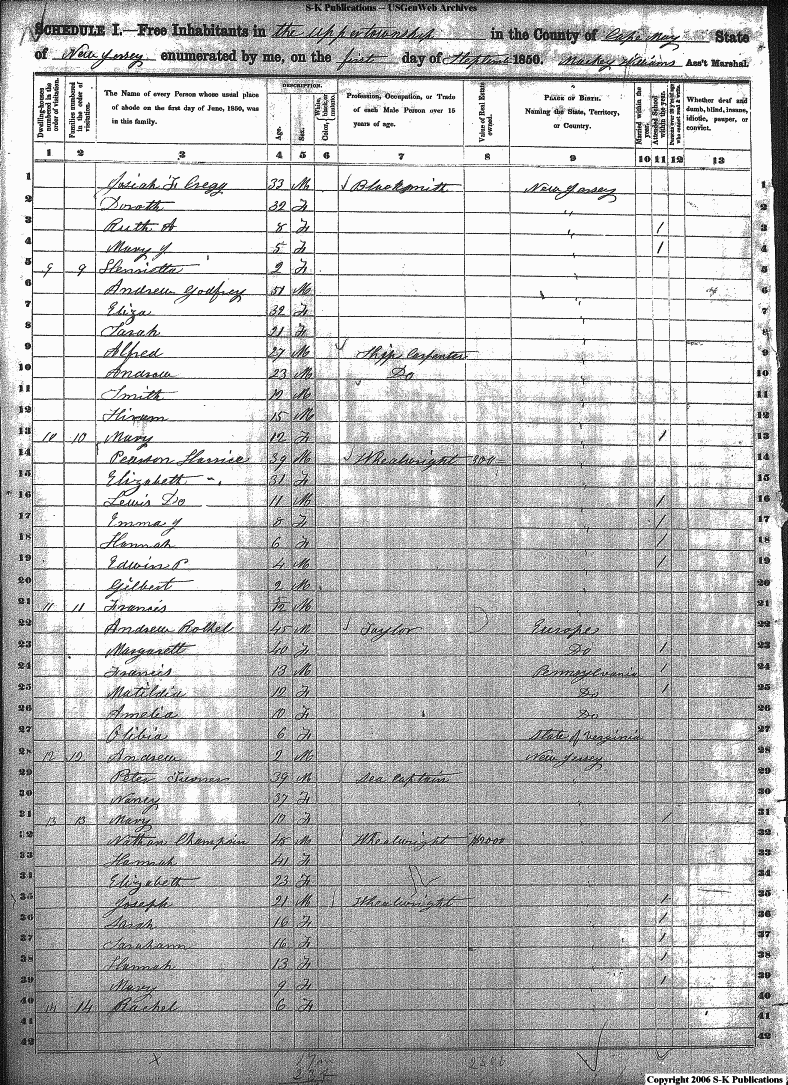 S-K Publications -- USGenWeb Archives
SCHEDULE I.—Free Inhabitants in the upper township in the County of Cape May State
of New Jersey enumerated by me, on the first day of Septem 1850. Mackey Williams Ass't Marshal.
Dwelling-houses numbered in the order of visitation.
Families numbered in the order of visitation.
The Name of every Person whose usual place of abode on the first day of June, 1850, was in this family.
DESCRIPTION.
Age.
Sex.
White, black, or mulatto.
Color,
Profession, Occupation, or Trade of each Male Person over 15 years of age.
Value of Real Estate owned.
PLACE OF BIRTH.
Naming the State, Territory, or Country.
Married within the year.
Attended School within the year.
Whether deaf and dumb, blind, insane, idiotic, pauper, or convict.
1 2 3 4 5 6 7 8 9 10 11 12 13
1 Josiah F Cregg 33 M Blacksmith New Jersey 1
2 Doroth 32 F " 2
3 Ruth A 8 F " 1 3
4 Mary J 5 F " 1 4
5 9 9 Henrietta 2 F " 5
6 Andrew Godfrey 51 M " 6
7 Eliza 32 F " 7
8 Sarah 21 F " 8
9 Alfred 27 M Ship Carpenter " 9
10 Andrew 23 M Do " 10
11 Smith M 11
12 Hiram 15 M 12
13 10 10 Mary 12 F 1 13
14 Pearson 39 M Whealwright 300 14
15 Elizabeth " 31 F 15
16 Lewis Do 11 M 1 16
17 Emma J 8 F 1 17
18 Hannah 6 F 1 18
19 Edwin P 4 M 1 19
20 Gilbert 2 M 20
21 11 11 Francis M 21
22 Andrew Rothel 45 M Taylor Europe 22
23 Margarett 40 F Do 1 23
24 Francis 13 M Pennsylvania 1 24
25 Matildia 12 F Do 1 25
26 Amelia 10 F Do 26
27 Olibia 6 F State of Verginia 27
28 12 12 Andrew 2 M New Jersey 28
29 Peter Turner 39 M Sea Captain 29
30 Nancy 37 F 30
31 13 13 Mary 10 F 1 31
32 Nathan Champain 45 M Whealwright $2000 32
33 Hannah 41 F 33
34 Elizabeth 23 F 34
35 Joseph 21 M Whealwright 1 35
36 Sarah 16 F 1 36
37 Sarahann 16 F 1 37
38 Hannah 13 F 1 38
39 Mary 9 F 1 39
40 14 14 Rachel 6 F 40
41 41
42 42
Copyright 2006 S-K Publications